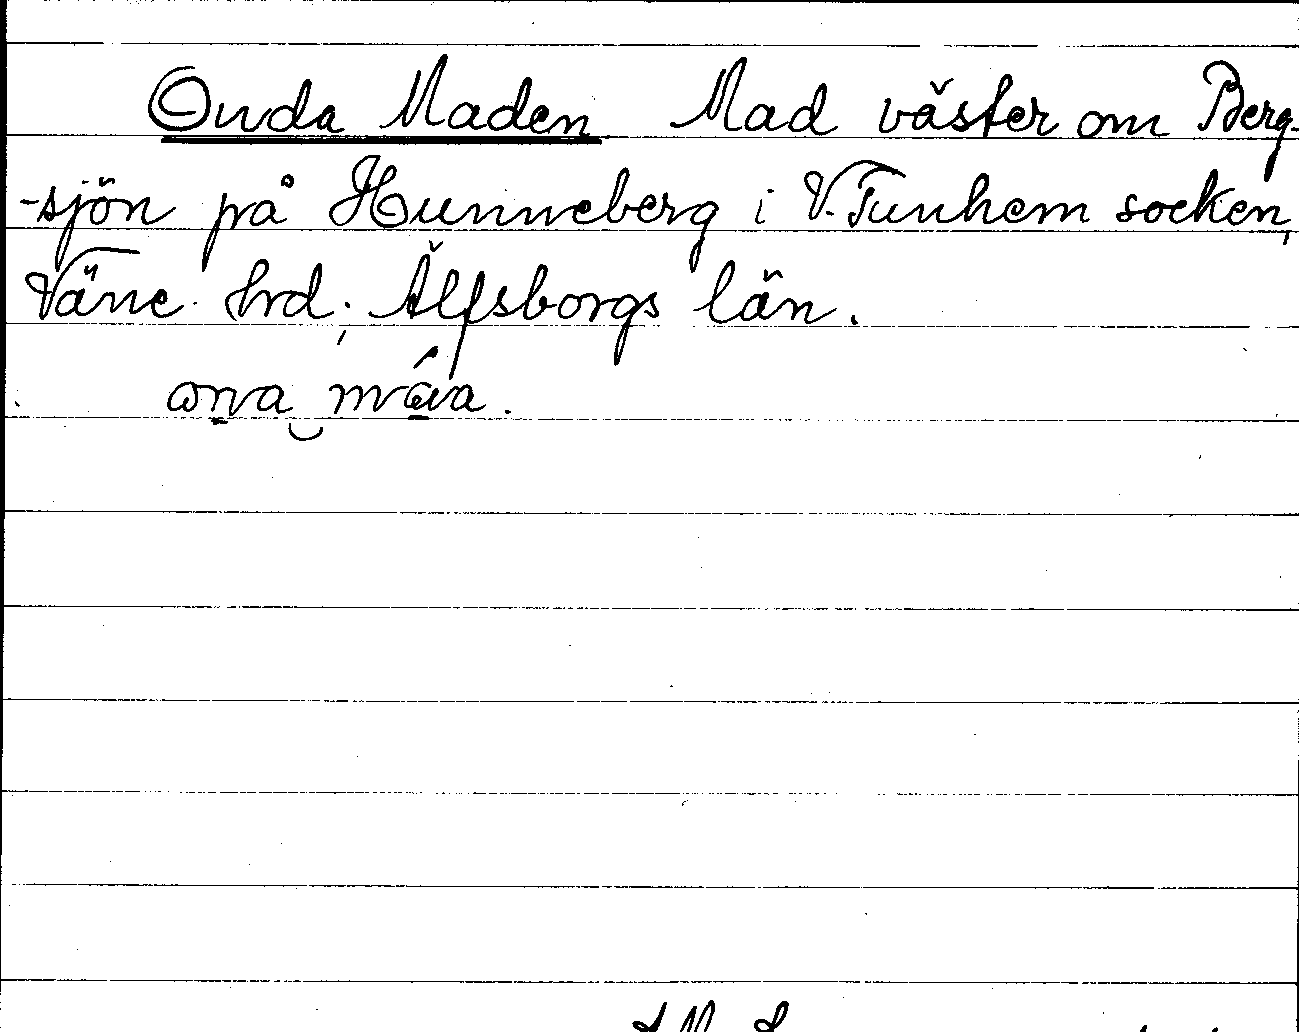 Onda Maden Mad väster om Berg-
-sjön på Hunneberg i V. Tunhem socken,
Väne hrd; Älfsborgs län.